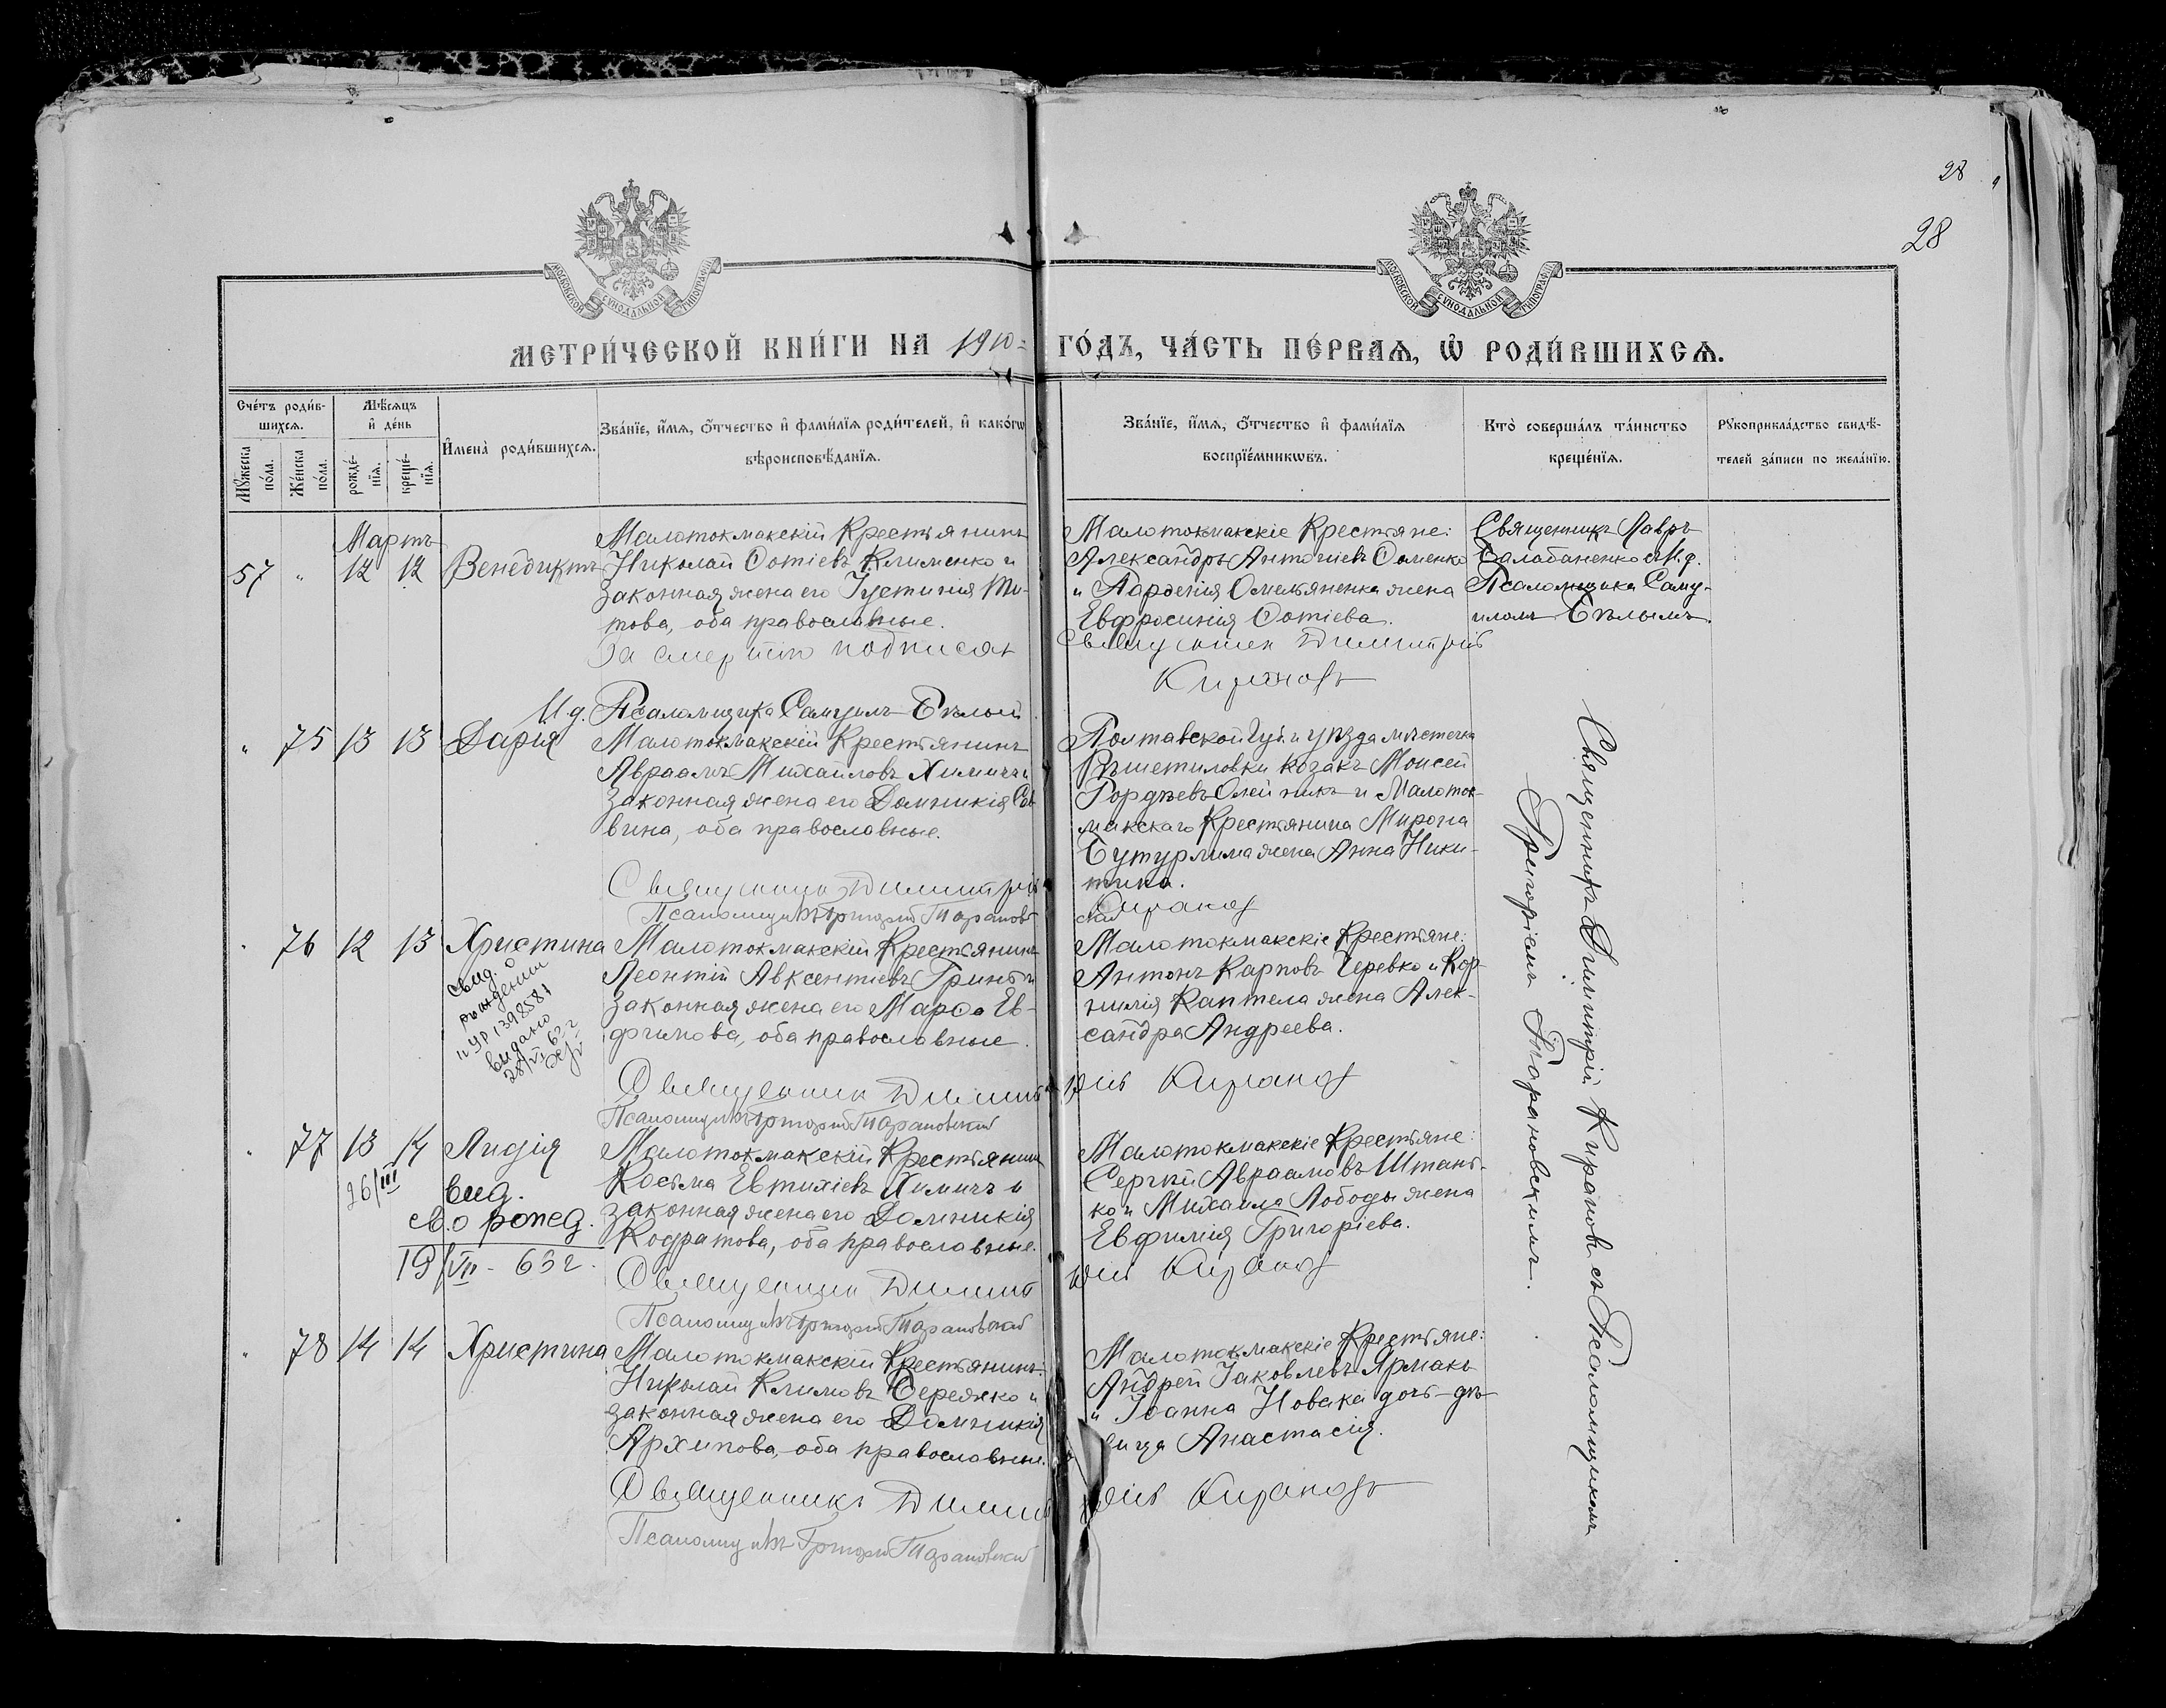 28
28
МОСКОВСКОЙ СѴНОДАЛЬНОЙ ТИПОГРАФІИ
МОСКОВСКОЙ СѴНОДАЛЬНОЙ ТИПОГРАФІИ
МЕТРИ́ЧЕСКОЙ КНИ́ГИ НА 1910 ГО́ДЪ, ЧА́СТЬ ПЕ́РВАѦ, Ѡ РОДИ́ВШИХСѦ.
Сче́тъ роди́в-
шихсѧ.
Мꙋ́жеска по́ла.
Же́нска по́ла.
Мѣ́сѧцъ
и҆ де́нь
рожде́-
нїѧ.
креще́-
нїѧ.
И҆мена̀ роди́вшихсѧ.
Зва́нїе, и҆́мѧ, ѻ҆́тчество и҆ фами́лїѧ роди́телей, и҆ како́гѡ
вѣроисповѣ́данїѧ.
Зва́нїе, и҆́мѧ, ѻ҆́тчество и҆ фами́лїѧ
воспрїе́мникѡвъ.
Кто̀ соверша́лъ та́инство
креще́нїѧ.
Рꙋкоприкла́дство свидѣ́-
телей за́писи по жела́нїю.
57 " Мартъ 12 12 Венедиктъ
Малотокмакскій Крестьянинъ
Николай Фотіевъ Клименко и
законная жена его Іустинія Ти-
това, оба православные.
За смертію подписали
И.д. Псаломщика Самуилъ Бѣлый
Малотокмакскіе Крестьяне:
Александръ Антоніевъ Фоменко
и Парѳенія Омельяненка жена
Евфросинія Фотіева.
Священник Димитрій
Киранов
Священникъ Лавръ
Балабаненко съ И.д.
Псаломщика Саму-
иломъ Бѣлымъ.
" 75 13 13 Дарія
Малотокмакскій Крестьянинъ
Авраамъ Михайловъ Химичъ и
законная жена его Домникія Сав-
вина, оба православные.
Священник Димитрій
Псаломщикъ Григорій Тарановс
Полтавской Губ. и уѣзда мѣстечка
Рѣшетиловки козакъ Моисей
Гордѣевъ Олейникъ и Малоток-
макскаго Крестьянина Мирона
Бутурлима жена Анна Ники-
тина.
Киранов
кій
" 76 12 13 Христина
свид. о
рождении
II УР 1398581
видано
28/VI 62 г
Малотокмакскій Крестьянинъ
Леонтій Авксентіевъ Гринь и
законная жена его Марѳа Ев-
фимова, оба православные.
Священник Димит
Псаломщикъ Григорій Тарановскій
Малотокмакскіе Крестьяне:
Антонъ Карповъ Черевко и Кор-
нилія Каптела жена Алек-
сандра Андреева.
рій Киранов
" 77 13 14 Лидія
26/III
вид.
св. о рожд.
19/VII - 63 г.
Малотокмакскій Крестьянинъ
Косьма Евтихіевъ Химичъ и
законная жена его Домникія
Кодратова, оба православные.
Священник Димит
Псаломщикъ Григорій Тарановскій
Малотокмакскіе Крестьяне:
Сергій Авраамовъ Штань-
ко и Михаила Лободы жена
Евфимія Григоріева.
рій Киранов
" 78 14 14 Христина
Малотокмакскій Крестьянинъ:
Николай Климовъ Бережко и
законная жена его Домникія
Архипова, оба православные.
Священникъ Димит
Псаломщикъ Григорій Тарановскій
Малотокмакскіе Крестьяне:
Андрей Іаковлевъ Ярмакъ
и Іоанна Новака дочь-дѣ-
вица Анастасія.
рій Кирановъ
Священникъ Димитрій Кирановъ съ Псаломщикомъ
Григоріемъ Тарановскимъ.